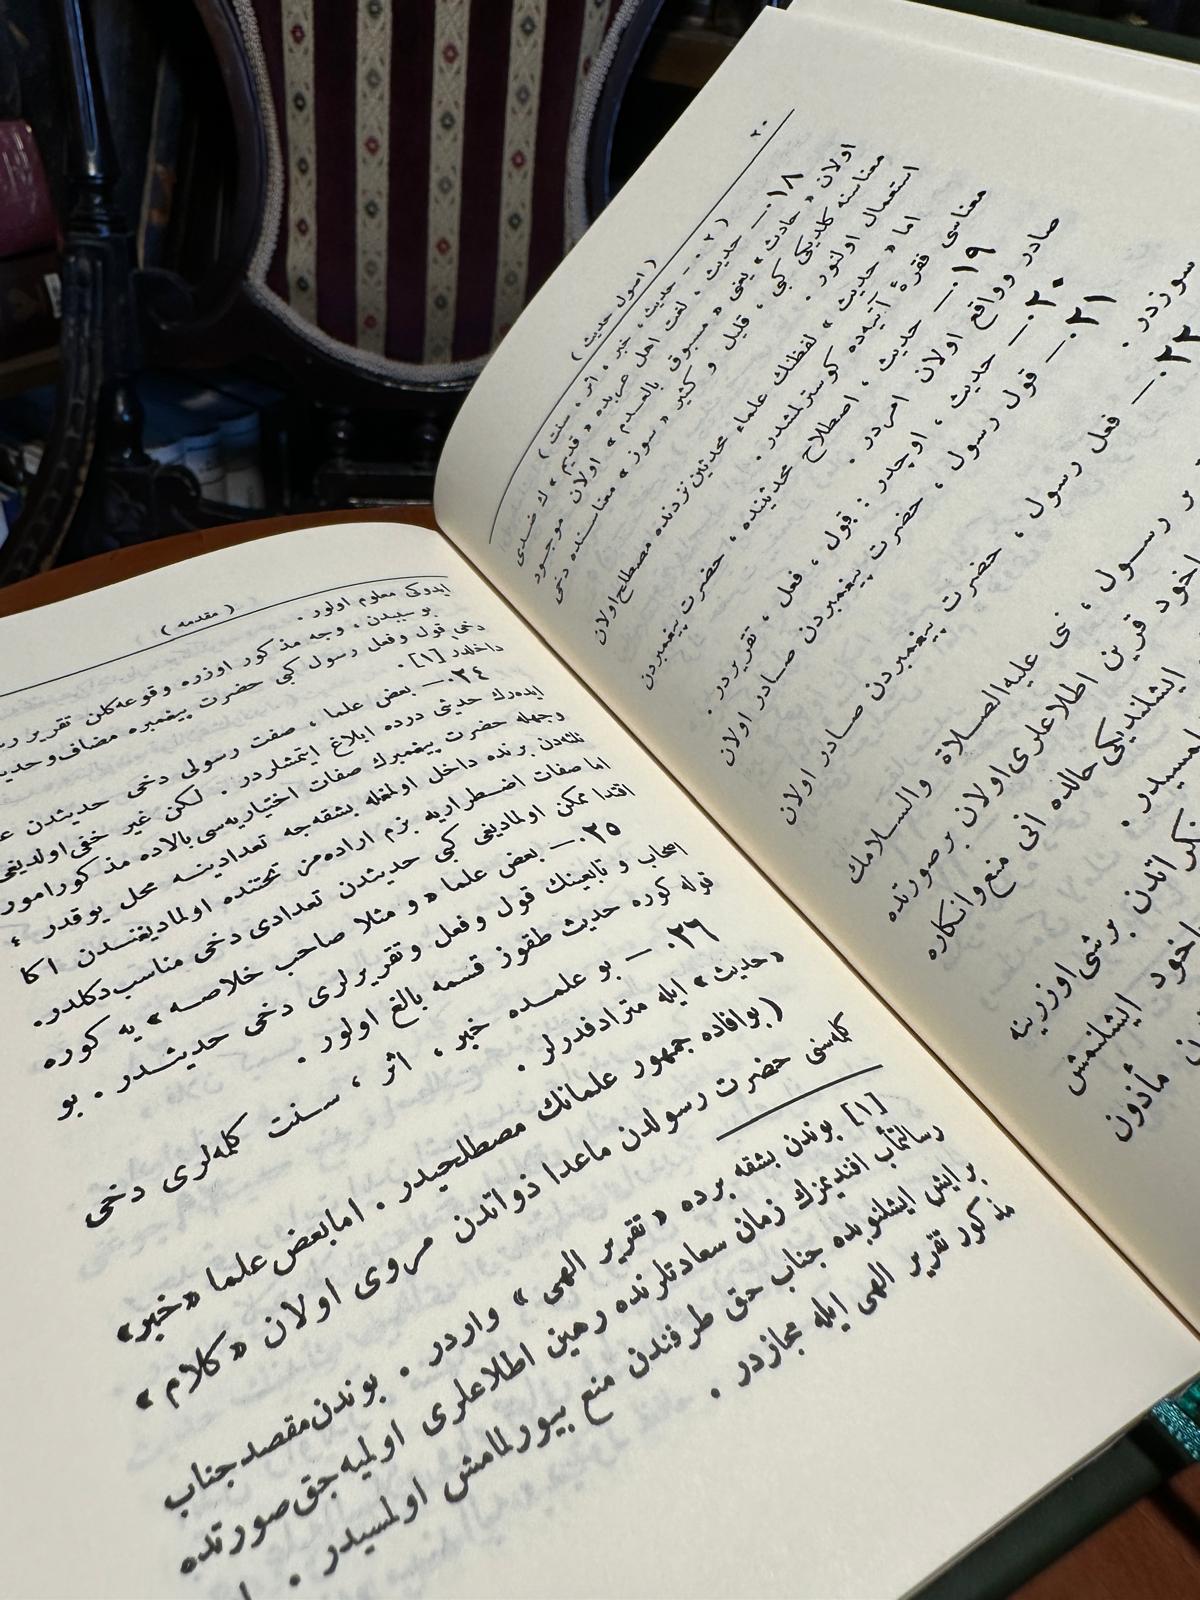 ٢٠
( اصول حديث )
( ٢٠ — حديث ، خبر ، اثر ، سنت )
١٨٠— حديث ، لغت اهل عربده « قديم » ك ضدى
اولان « حادث » يعنى « مسبوق بالعدم » اولان موجود
معناسنه كلديكى كبى ، قليل و كثير « سوز » معناسنده دخى
استعمال اولنور .
اما « حديث » لفظنك علماء محدثين نزدنده مصطلح اولان
معناسى فقرۀ آتيه‌ده كوسترلمشدر .
١٩٠— حديث ، اصطلاح محدثينده ، حضرت پيغمبردن
صادر وواقع اولان امردر .
٢٠٠— حديث ، اوچدر : قول ، فعل ، تقريردر .
٢١٠— قول رسول ، حضرت پيغمبردن صادر اولان
سوزدر .
٢٢٠— فعل رسول ، حضرت پيغمبردن صادر اولان
ر رسول ، نبى عليه الصلاة والسلامك
اخود قرين اطلاعلرى اولان برصورتده
ايشلنديكى حالده آنى منع وانكاره
لمسيدر .
كر اتدن برشى اوزرينه
اخود ايشلنمش
مأذون
( مقدمه )
ايدوكى معلوم اولور .
بو سببدن ، وجه مذكور اوزره وقوعه‌كلن تقرير رسول
دخى قول وفعل رسول كبى حضرت پيغمبره مضاف وحديثده
داخلدر [١] .
٢٤٠— بعض علما ، صفت رسولى دخى حديثدن
ايده‌رك حديثى درده ابلاغ ايتمشلردر . لكن غير خفى اولديغى
وجهله حضرت پيغمبرك صفات اختياريه‌سى بالاده مذكور امور
ثلثه‌دن برنده داخل اولمغله بشقه‌جه تعدادينه محل يوقدر ؛
اما صفات اضطراريه بزم اراده‌مز تحتنده اولماديغندن اكا
اقتدا ممكن اولماديغى كبى حديثدن تعدادى دخى مناسب دكلدر.
٢٥٠— بعض علما « و مثلا صاحب خلاصه » يه كوره
اصحاب و تابعينك قول وفعل وتقريرلرى دخى حديثدر . بو
قوله كوره حديث طقوز قسمه بالغ اولور .
٢٦٠— بو علمده خبر ، اثر ، سنت كلمه‌لرى دخى
« حديث » ايله مترادفدرلر .
( بوافاده جمهور علمانك مصطلحيدر . امابعض علما « خبر »
كله‌سنى حضرت رسولدن ماعدا ذواتدن مروى اولان « كلام »
[١] بوندن بشقه برده « تقرير الهى » واردر . بوندن مقصد جناب
رسالتمآب افنديمزك زمان سعادتلرنده رهين اطلاعلرى اولميه جق صورتده
برايش ايشلنوبده جناب حق طرفندن منع بيورلمامش اولمسيدر .
مذكور تقرير الهى ايله مجازدر .